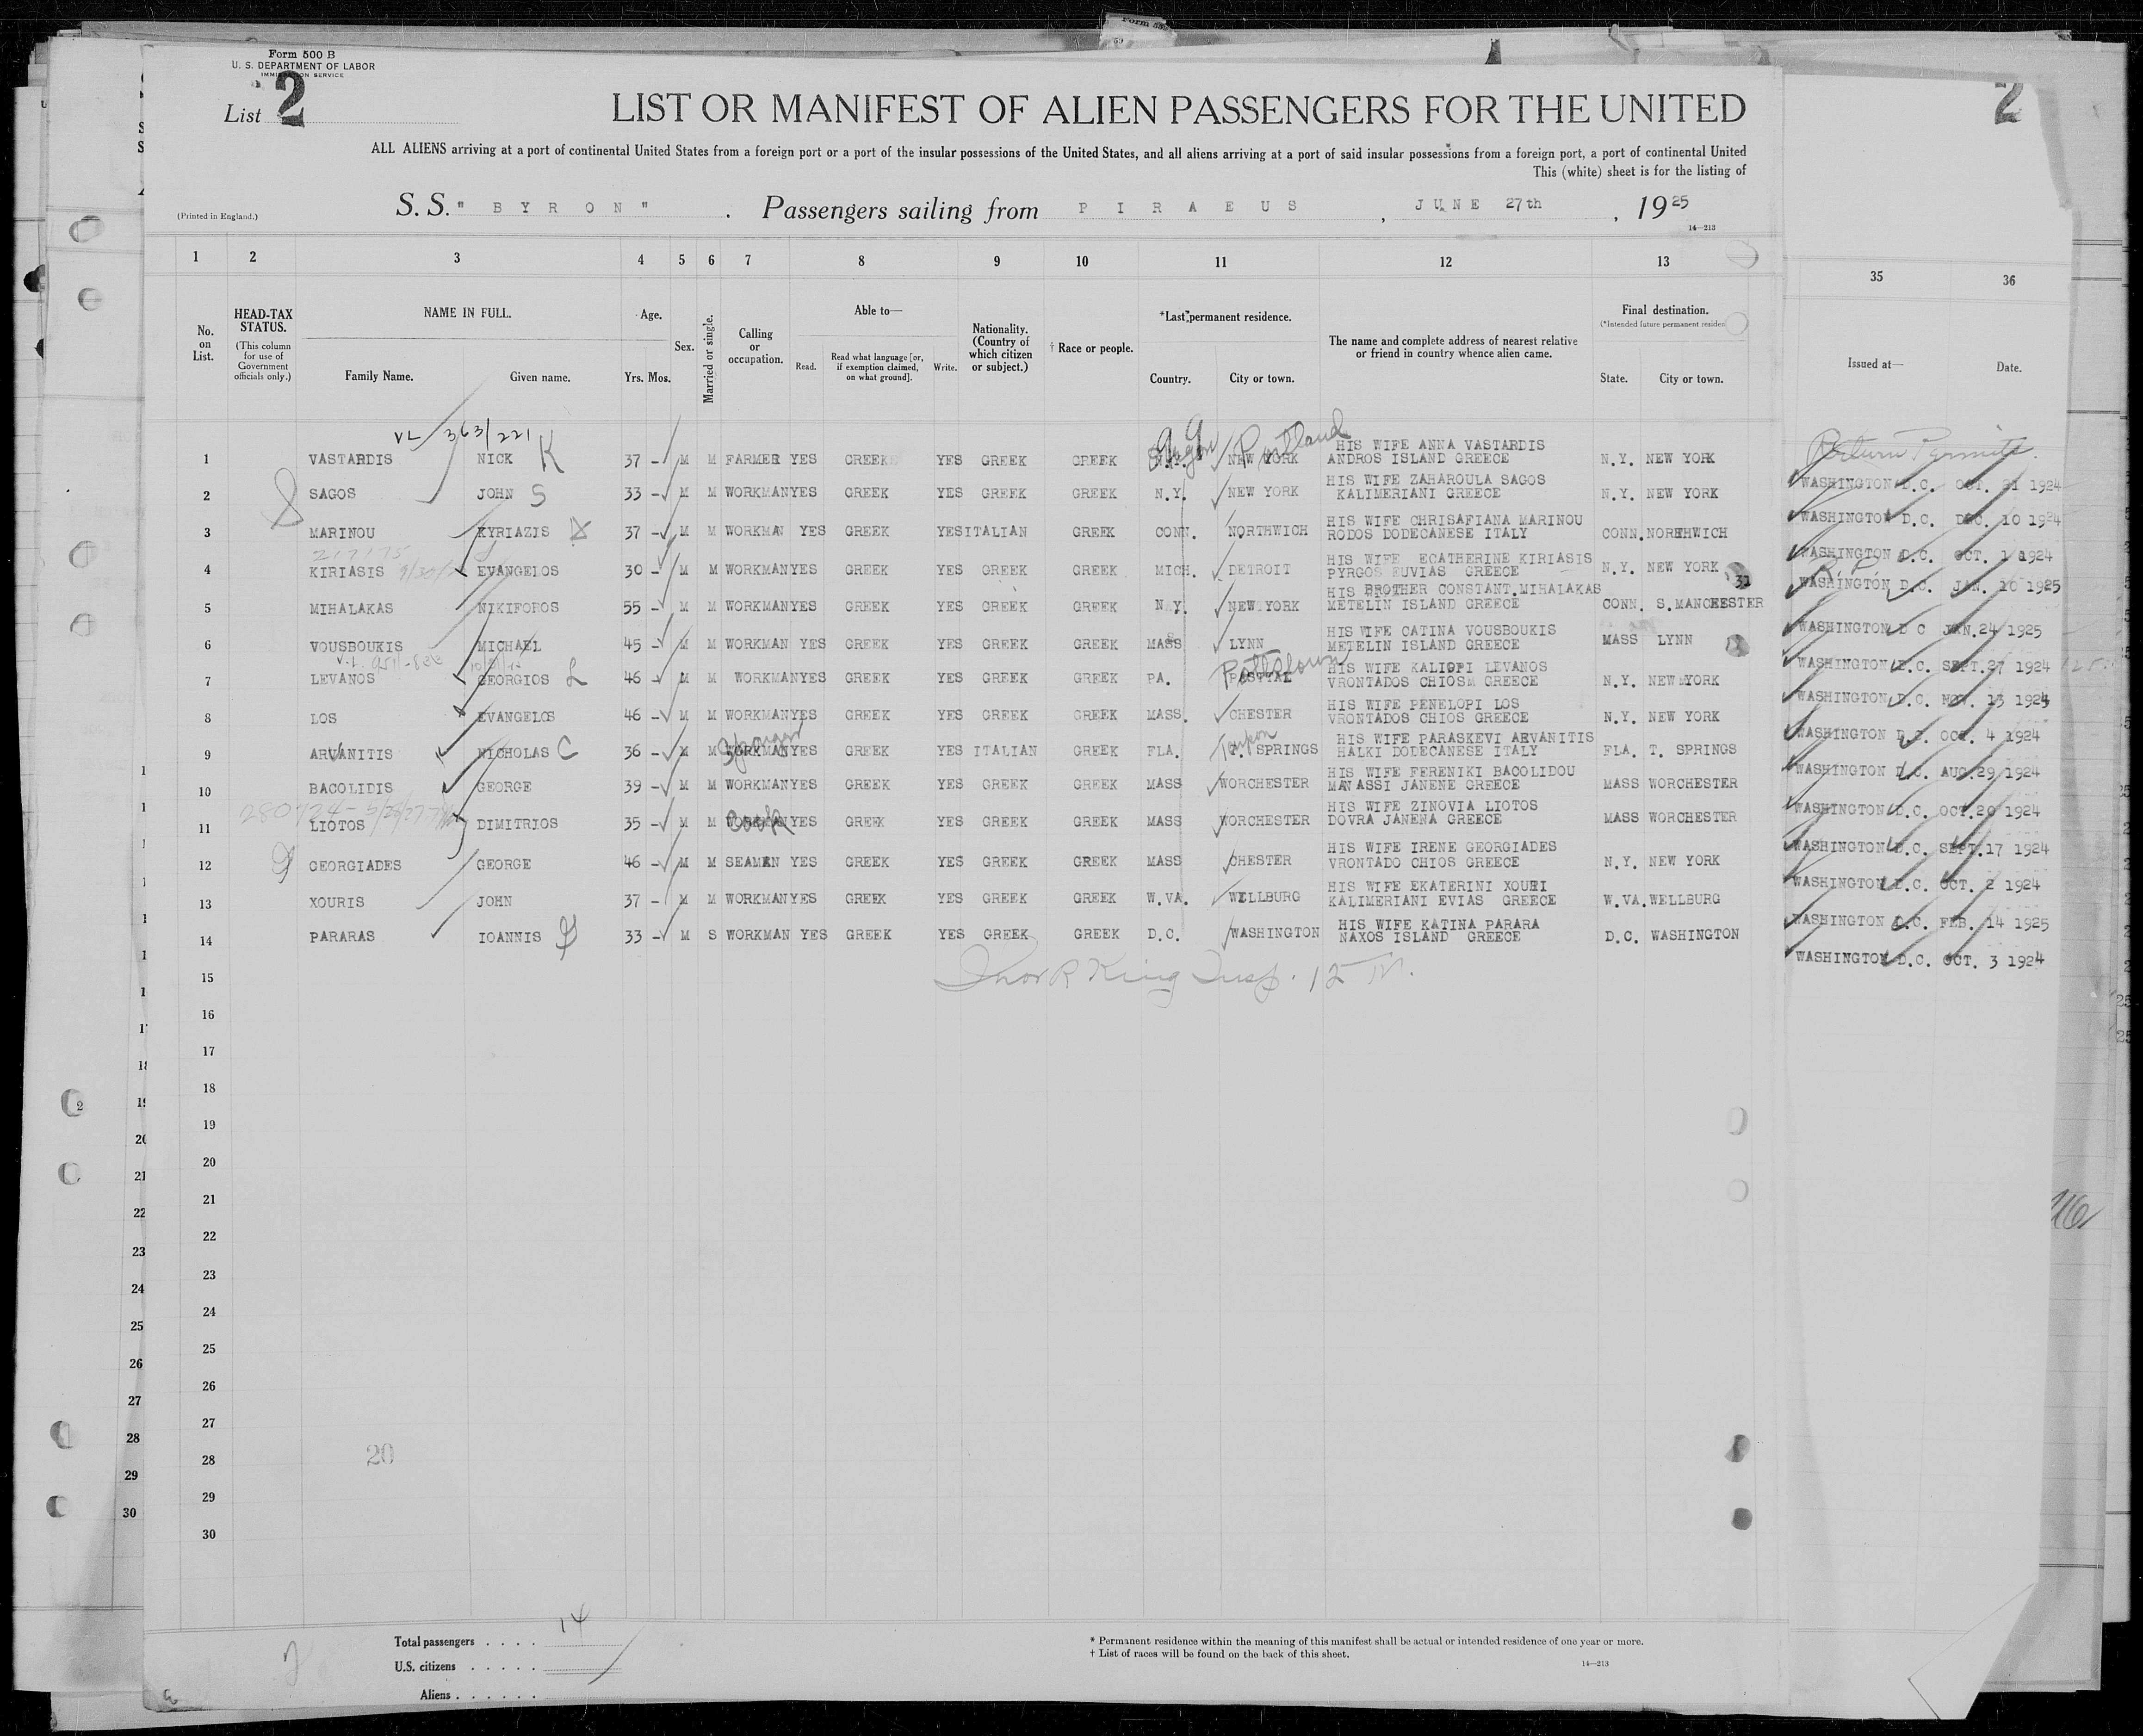 Form 500 B
U. S. DEPARTMENT OF LABOR
IMMIGRATION SERVICE
List 2
LIST OR MANIFEST OF ALIEN PASSENGERS FOR THE UNITED
ALL ALIENS arriving at a port of continental United States from a foreign port or a port of the insular possessions of the United States, and all aliens arriving at a port of said insular possessions from a foreign port, a port of continental United
This (white) sheet is for the listing of
(Printed in England.) S. S. "BYRON" . Passengers sailing from PIRAEUS , JUNE 27th , 1925
14—213
1 2 3 4 5 6 7 8 9 10 11 12 13 35 36
No. on List.
HEAD-TAX STATUS.
(This column for use of Government officials only.)
NAME IN FULL.
Family Name. Given name.
Age.
Yrs. Mos.
Sex.
Married or single.
Calling or occupation.
Able to—
Read. Read what language [or, if exemption claimed, on what ground]. Write.
Nationality. (Country of which citizen or subject.)
† Race or people.
*Last permanent residence.
Country. City or town.
The name and complete address of nearest relative or friend in country whence alien came.
Final destination.
(*Intended future permanent residen
State. City or town.
Issued at— Date.
VL 363/221 K
Portland
Return Permits.
1 VASTARDIS NICK 37 - M M FARMER YES GREEK YES GREEK GREEK NEW YORK HIS WIFE ANNA VASTARDIS ANDROS ISLAND GREECE N.Y. NEW YORK WASHINGTON D.C. OCT. 21 1924
2 SAGOS JOHN S 33 - M M WORKMAN YES GREEK YES GREEK GREEK N.Y. NEW YORK HIS WIFE ZAHAROULA SAGOS KALIMERIANI GREECE N.Y. NEW YORK WASHINGTON D.C. DEC. 10 1924
3 MARINOU KYRIAZIS 37 - M M WORKMAN YES GREEK YES ITALIAN GREEK CONN. NORTHWICH HIS WIFE CHRISAFIANA MARINOU RODOS DODECANESE ITALY CONN. NORTHWICH WASHINGTON D.C. OCT. 1 1924
217175
4 KIRIASIS EVANGELOS 30 - M M WORKMAN YES GREEK YES GREEK GREEK MICH. DETROIT HIS WIFE ECATHERINE KIRIASIS PYRGOS EUVIAS GREECE N.Y. NEW YORK 31 WASHINGTON D.C. JAN. 10 1925
5 MIHALAKAS NIKIFOROS 55 - M M WORKMAN YES GREEK YES GREEK GREEK N.Y. NEW YORK HIS BROTHER CONSTANT.MIHALAKAS METELIN ISLAND GREECE CONN. S.MANCHESTER WASHINGTON D C JAN.24 1925
6 VOUSBOUKIS MICHAEL 45 - M M WORKMAN YES GREEK YES GREEK GREEK MASS LYNN HIS WIFE CATINA VOUSBOUKIS METELIN ISLAND GREECE MASS LYNN WASHINGTON D.C. SEPT.27 1924
Pottstown
7 LEVANOS GEORGIOS L 46 M M WORKMAN YES GREEK YES GREEK GREEK PA. HIS WIFE KALIOPI LEVANOS VRONTADOS CHIOS GREECE N.Y. NEW YORK WASHINGTON D.C. NOV. 13 1924
8 LOS EVANGELOS 46 - M M WORKMAN YES GREEK YES GREEK GREEK MASS. CHESTER HIS WIFE PENELOPI LOS VRONTADOS CHIOS GREECE N.Y. NEW YORK WASHINGTON D.C. OCT. 4 1924
9 ARVANITIS NICHOLAS C 36 - M M WORKMAN YES GREEK YES ITALIAN GREEK FLA. T. SPRINGS HIS WIFE PARASKEVI ARVANITIS HALKI DODECANESE ITALY FLA. T. SPRINGS WASHINGTON D.C. AUG.29 1924
10 BACOLIDIS GEORGE 39 - M M WORKMAN YES GREEK YES GREEK GREEK MASS WORCHESTER HIS WIFE FERENIKI BACOLIDOU MAVASSI JANENE GREECE MASS WORCHESTER WASHINGTON D.C. OCT.20 1924
11 LIOTOS DIMITRIOS 35 - M M Cook YES GREEK YES GREEK GREEK MASS WORCHESTER HIS WIFE ZINOVIA LIOTOS DOVRA JANENA GREECE MASS WORCHESTER WASHINGTON D.C. SEPT.17 1924
12 GEORGIADES GEORGE 46 - M M SEAMEN YES GREEK YES GREEK GREEK MASS CHESTER HIS WIFE IRENE GEORGIADES VRONTADO CHIOS GREECE N.Y. NEW YORK WASHINGTON D.C. OCT. 2 1924
13 XOURIS JOHN 37 - M M WORKMAN YES GREEK YES GREEK GREEK W.VA. WELLBURG HIS WIFE EKATERINI XOURI KALIMERIANI EVIAS GREECE W.VA. WELLBURG WASHINGTON D.C. FEB. 14 1925
14 PARARAS IOANNIS 33 - M S WORKMAN YES GREEK YES GREEK GREEK D.C. WASHINGTON HIS WIFE KATINA PARARA NAXOS ISLAND GREECE D.C. WASHINGTON WASHINGTON D.C. OCT. 3 1924
15 Thos R King Insp. 12
16
17
18
19
20
21
22
23
24
25
26
27
28
29
30
20
Total passengers . . . . 14
U.S. citizens . . . . .
Aliens . . . . . .
* Permanent residence within the meaning of this manifest shall be actual or intended residence of one year or more.
† List of races will be found on the back of this sheet.
14—213